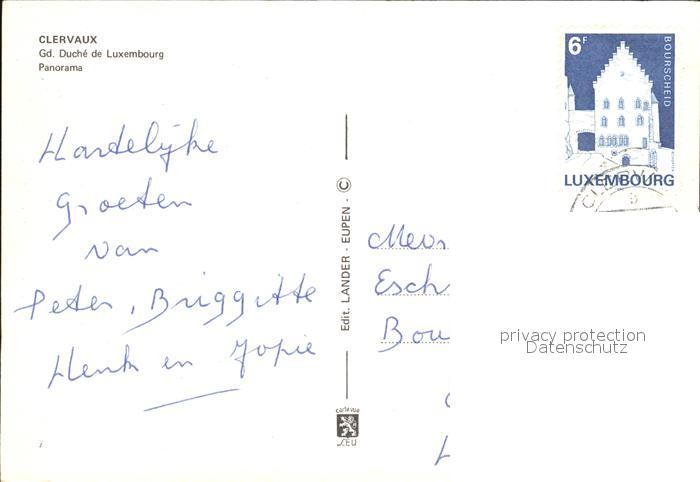 CLERVAUX
Gd. Duché de Luxembourg
Panorama
6F
BOURSCHEID
LUXEMBOURG
Hartelijke
Groeten
van
Peter, Briggitte
Henk en Jopie
Edit. LANDER - EUPEN - ©
cartevue
Mevr
Esch
Bou
privacy protection
Datenschutz